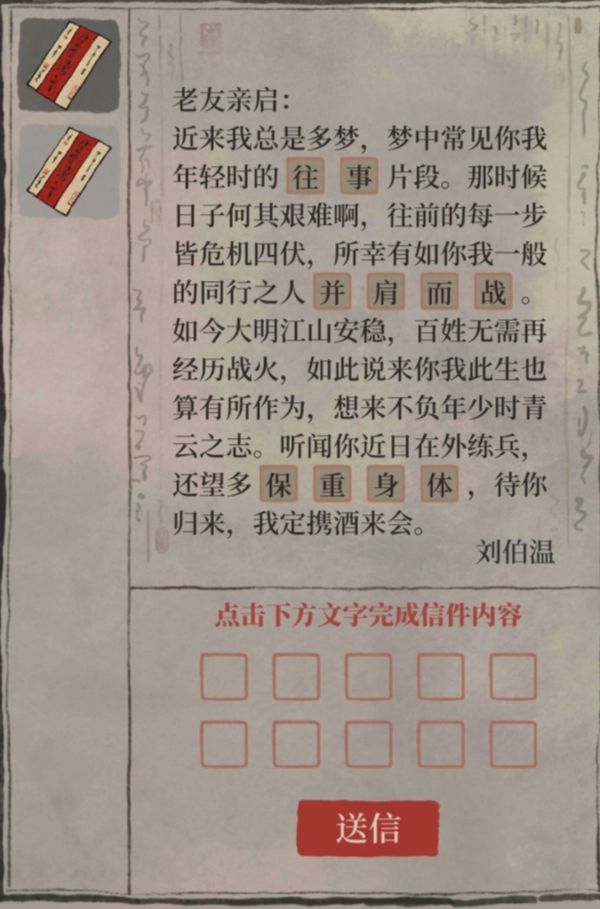 老友亲启：
近来我总是多梦，梦中常见你我
年轻时的往事片段。那时候
日子何其艰难啊，往前的每一步
皆危机四伏，所幸有如你我一般
的同行之人并肩而战。
如今大明江山安稳，百姓无需再
经历战火，如此说来你我此生也
算有所作为，想来不负年少时青
云之志。听闻你近日在外练兵，
还望多保重身体，待你
归来，我定携酒来会。
刘伯温
点击下方文字完成信件内容
送信